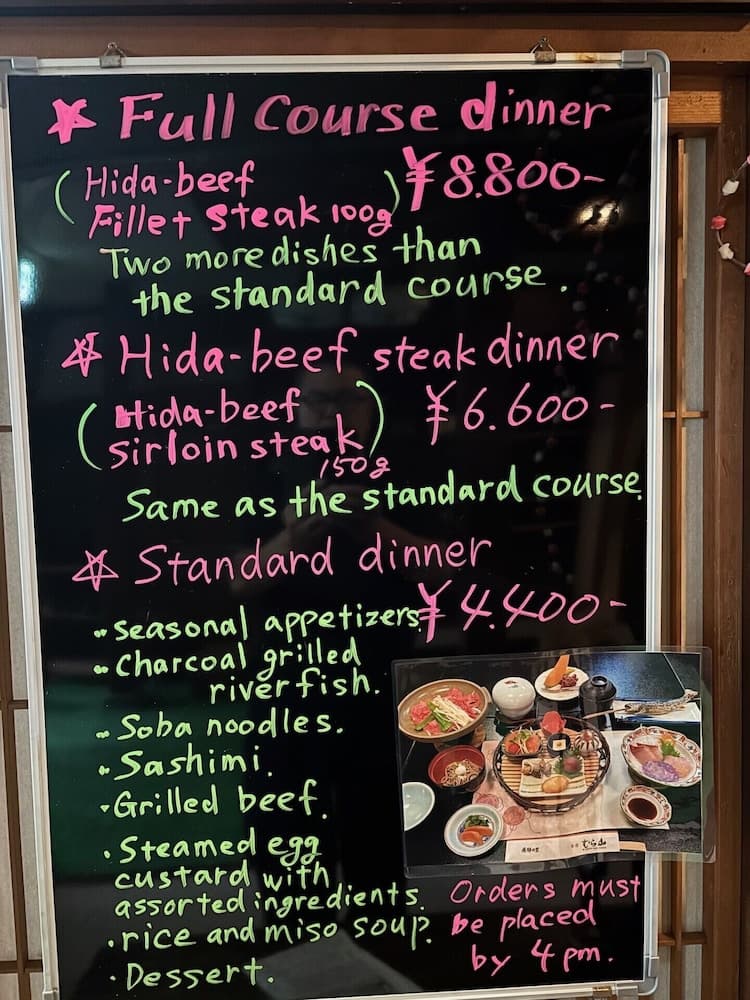 ☆ Full Course dinner
(Hida-beef
Fillet Steak 100g) ¥8.800-
Two more dishes than
the standard course.
☆ Hida-beef steak dinner
(Hida-beef
sirloin steak) ¥6.600-
150g
Same as the standard course.
☆ Standard dinner
¥4.400-
・Seasonal appetizers.
・Charcoal grilled
river fish.
・Soba noodles.
・Sashimi.
・Grilled beef.
・Steamed egg
custard with
assorted ingredients.
・rice and miso soup.
・Dessert.
むら山
Orders must
be placed
by 4 pm.